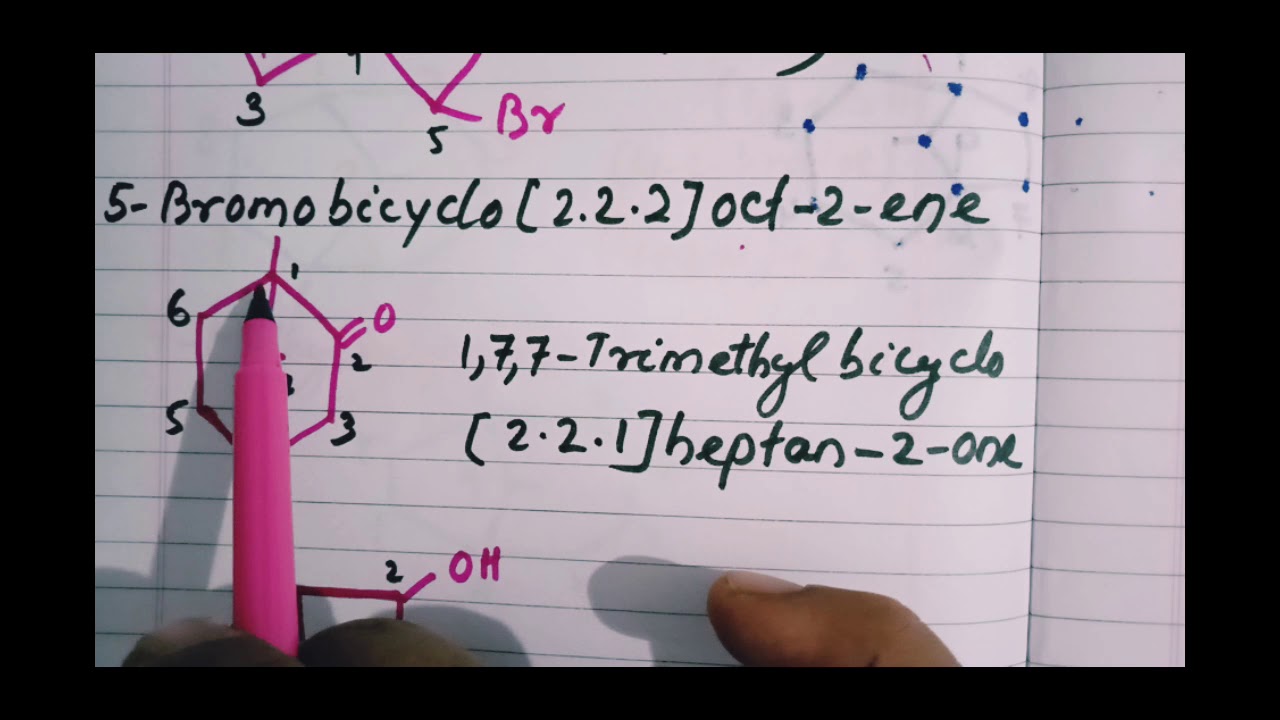 3
5
Br
5-Bromobicyclo[2.2.2]oct-2-ene
1
6
O
2
5
3
1,7,7-Trimethylbicyclo
[2.2.1]heptan-2-one
2
OH